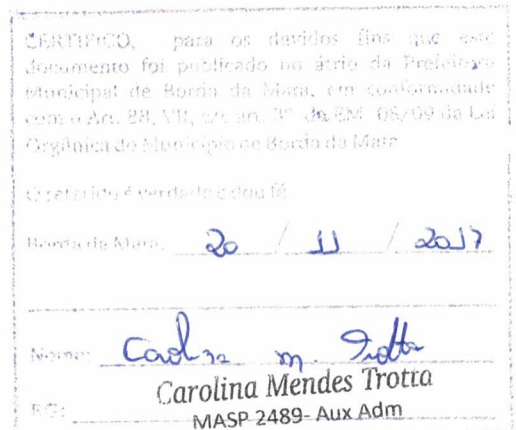 CERTIFICO, para os devidos fins que este
documento foi publicado no átrio da Prefeitura
Municipal de Borda da Mata, em conformidade
com o Art. 88, VII, c/c art. 3º da EM 05/09 da Lei
Orgânica do Município de Borda da Mata
O referido é verdade e dou fé
Borda da Mata, 20 / 11 / 2017
Nome: Carolina M. Trotta
Carolina Mendes Trotta
RG: MASP 2489- Aux Adm